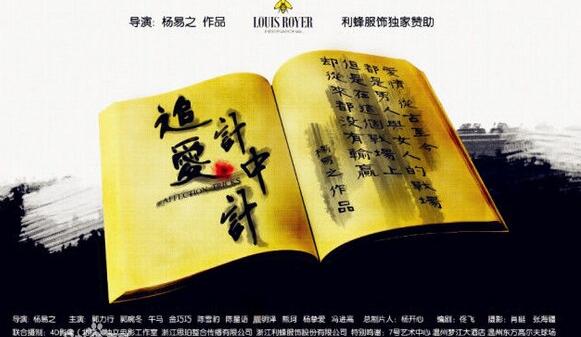 导演：杨易之 作品
LOUIS ROYER
利蜂服饰独家赞助
追愛
計中計
AFFECTION TRICKS
愛情從古至今
都是男人與女人的戰場
但是在這個戰場上
却從來都没有輸贏
楊易之作品
导演：杨易之 主演：郭力行 郭碗冬 午马 金巧巧 陈雪韵 陈星语 熊珂 杨挚爱 冯进高 总制片人：杨开心 编剧：佟飞 摄影：肖艇 张海疆
联合摄制：4D 独立电影工作室 浙江思珀整合传播有限公司 浙江利蜂服饰股份有限公司 特别鸣谢：7号艺术中心 温州梦江大酒店 温州东方高尔夫球场